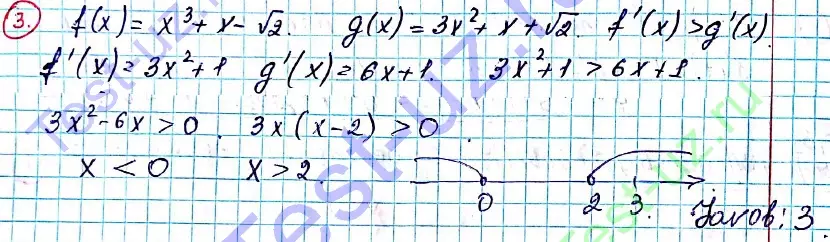 3. f(x) = x³ + x - √2. g(x) = 3x² + x + √2. f'(x) > g'(x).
f'(x) = 3x² + 1 g'(x) = 6x + 1. 3x² + 1 > 6x + 1.
3x² - 6x > 0. 3x(x - 2) > 0.
x < 0 x > 2
0 2 3. Javob: 3.
Test-uz.ru
Test-uz.ru
Test-uz.ru